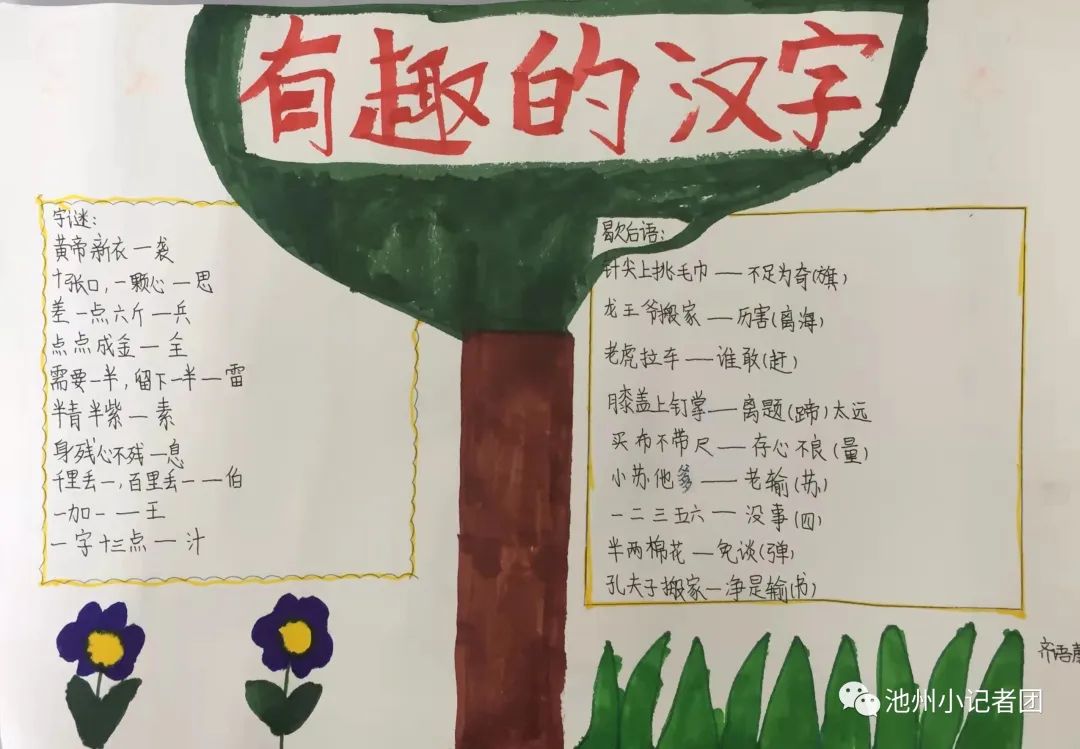 有趣的汉字
字谜：
黄帝新衣一袭
十张口，一颗心一思
差一点六斤一兵
点点成金一全
需要一半，留下一半一雷
半青半紫一素
身残心不残一息
千里丢一，百里丢一一伯
一加一一王
一字十三点一汁
歇后语：
针尖上挑毛巾——不足为奇(旗)
龙王爷搬家——厉害(离海)
老虎拉车——谁敢(赶)
膝盖上钉掌——离题(蹄)太远
买布不带尺——存心不良(量)
小苏他爹——老输(苏)
一二三五六一没事(四)
半两棉花—免谈(弹)
孔夫子搬家—净是输(书)
齐语
池州小记者团